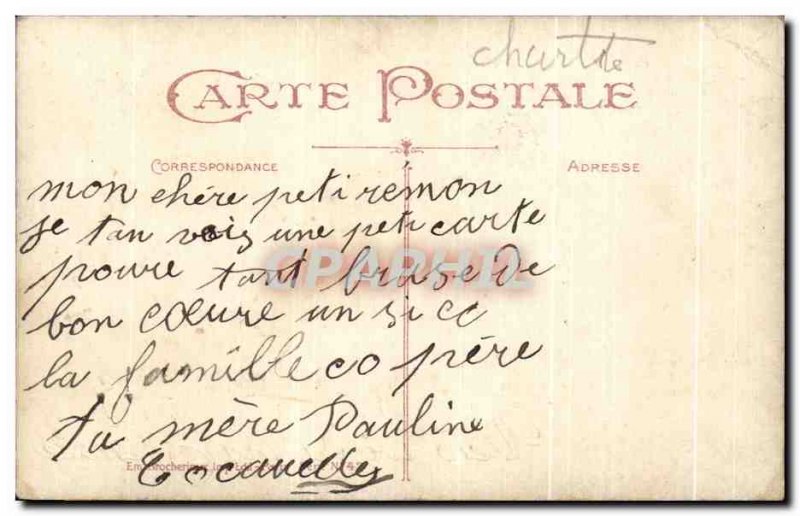 chartre
CARTE POSTALE
CORRESPONDANCE
ADRESSE
mon chére peti remon
je tan vois une peti carte
poure tant brase de
bon cœure un si cc
la famille co pére
ta mère Pauline